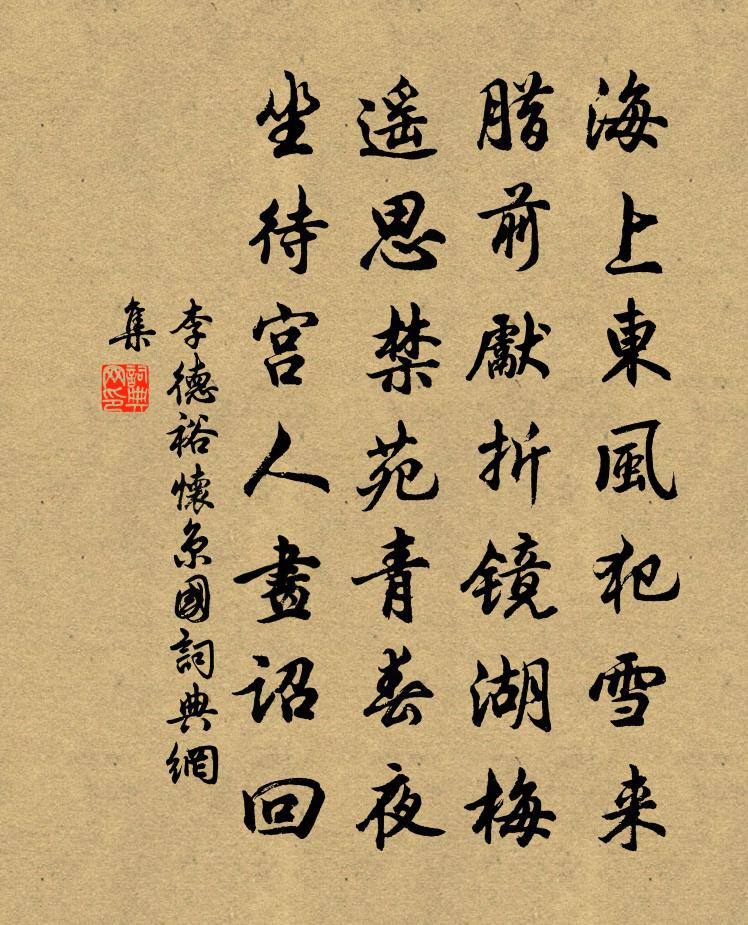 海上東風犯雪来
腊前獻折镜湖梅
遥思禁苑青春夜
坐待宫人畫诏回
李德裕懷京國詞典網
集
詞典
网印